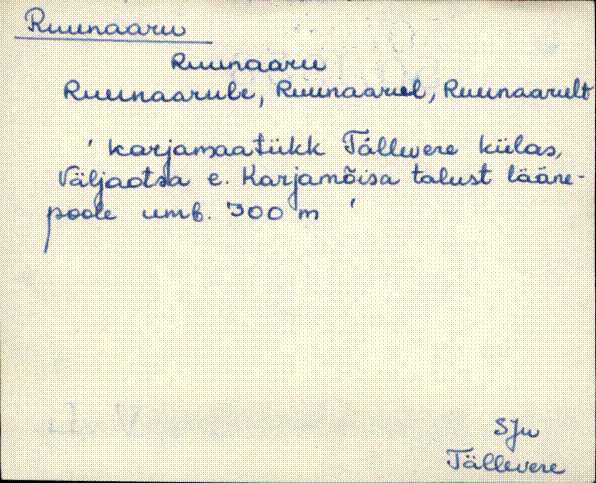 Ruunaaru
Ruunaaru
Ruunaarule, Ruunaarul, Ruunaarult
' karjamaatükk Tällevere külas,
Väljaotsa e. Karjamõisa talust lääne-
poole umb. 300 m '
SJu
Tällevere